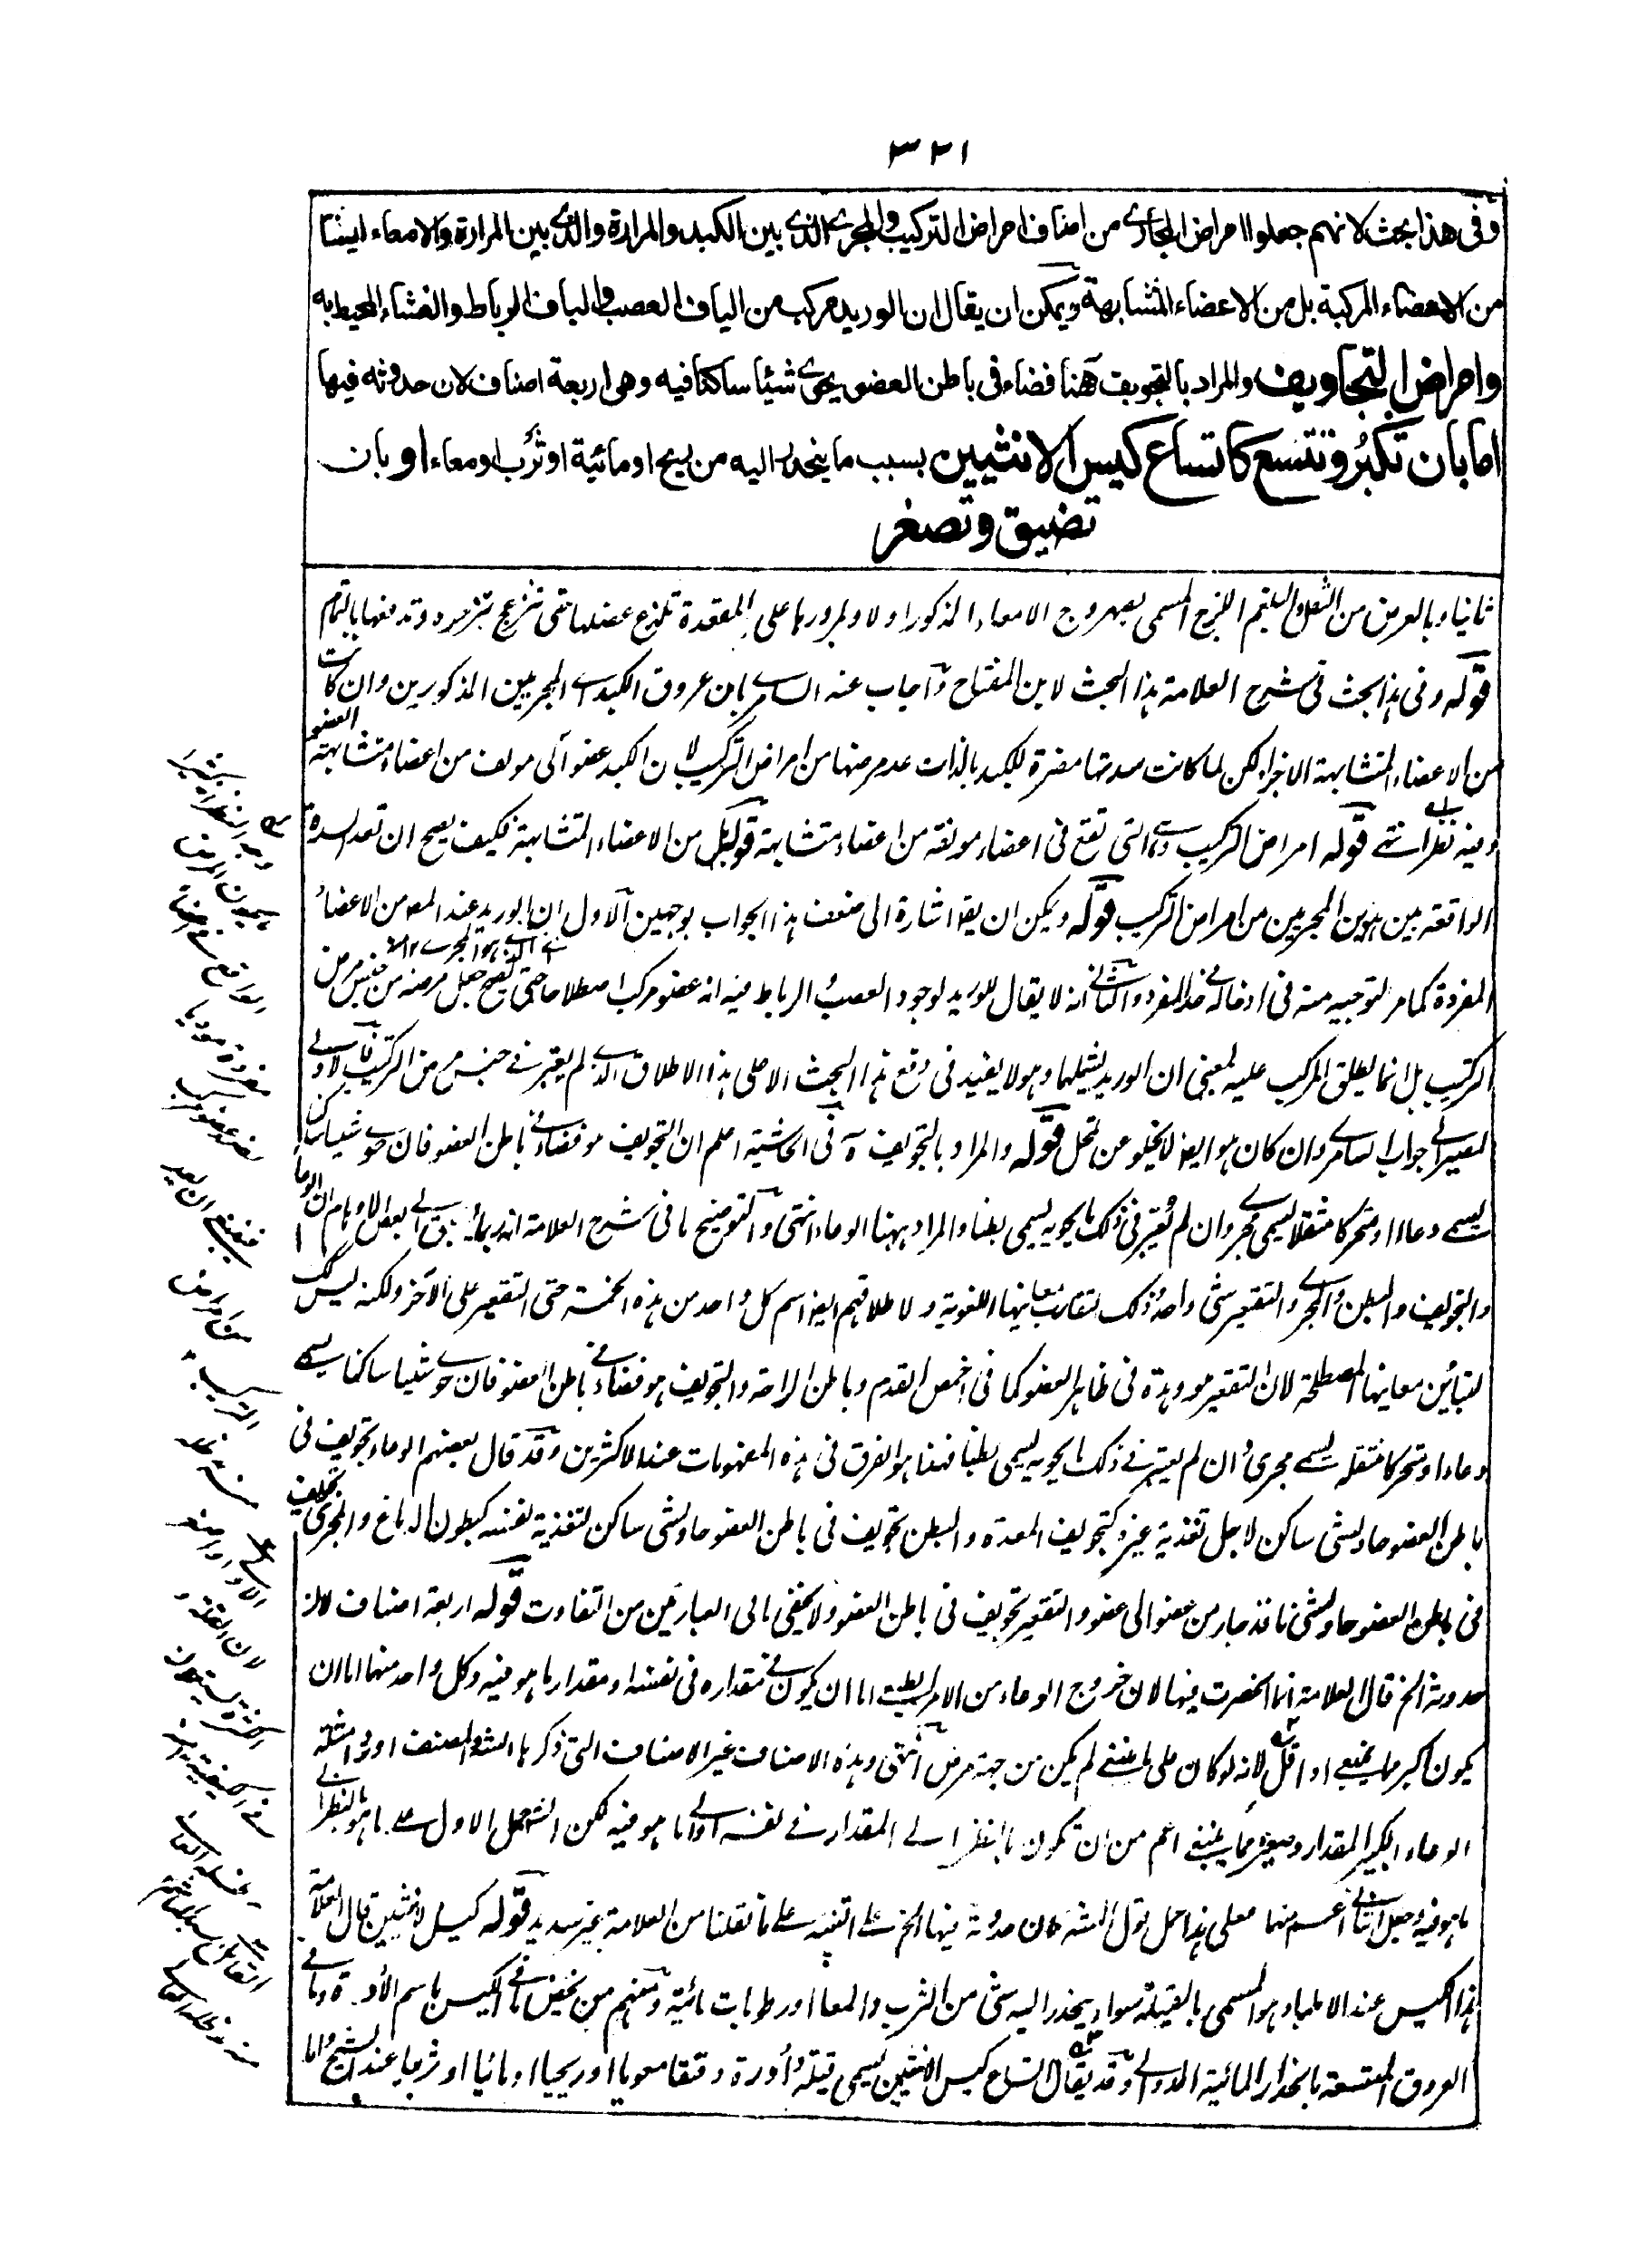 ٣٢١
وفى هذا بحث لانهم جعلوا امراض المجارى من اصناف امراض التركيب والمجرى الذى بين الكبد والمرارة والذى بين المرارة والامعاء ليستا
من الاعضاء المركبة بل من الاعضاء المتشابهة ويمكن ان يقال ان الوريد مركب من الياف العصب والياف الرباط والغشاء المحيط به
وامراض التجاويف والمراد بالتجويف ههنا فضاء فى باطن العضو يحوى شيئا ساكنا فيه وهى اربعة اصناف لان حدوثه فيها
اما بان تكبر وتتسع كاتساع كيس الانثيين بسبب ما ينحدر اليه من ريح او مائية او ثرب او معاء او بان
تضيق وتصغر
ثانيا وبالعرض من الثفل والبلغم اللزج المسمى بصهروج الامعاء المذكور اولا ولمرورها على المقعدة تلذع عضلها حتى تنزعج وتدفعها بالتمام
قوله وفى هذا بحث فى شرح العلامة هذا البحث لابن المفتاح واجاب عنه السامرى بان عروق الكبد اى المجريين المذكورين وان كانت
من الاعضاء المتشابهة الاجزاء لكن لما كانت سدتها مضرة للكبد بالذات عد مرضها من امراض التركيب لان الكبد عضو آلى مولف من اعضاء متشابهة
وفيه نظر انتهى قوله امراض التركيب وهى التى تقع فى اعضاء مولفة من اعضاء متشابهة قوله بل من الاعضاء المتشابهة فكيف يصح ان تعد السدة
الواقعة بين هذين المجريين من امراض التركيب قوله ويمكن ان يقا اشارة الى ضعف هذا الجواب بوجهين الاول ان الوريد عند المص من الاعضاء
المفردة كما مر التوجيه منه فى ادخاله فى حد المفرد والثانى انه لا يقال للوريد لوجود العصب والرباط فيه انه عضو مركب اصطلاحا حتى يصح جعل مرضه من جنس مرض
التركيب بل انما يطلق المركب عليه بمعنى ان الوريد يشملهما وهو لا يفيد فى دفع هذا البحث الاصلى هذا الاطلاق الذى لم يعتبر فى جنس مرض التركيب فالاولى
المصير الى جواب السامرى وان كان هو ايضا لا يخلو عن تمحل قوله والمراد بالتجويف آه فى الحاشية اعلم ان التجويف هو فضاء فى باطن العضو فان حوى شيئا ساكنا
يسمى وعاء او متحركا منتقلا يسمى مجرى وان لم يعتبر فى ذلك ما يحويه يسمى بطنا والمراد ههنا الوعاء انتهى والتوضيح ما فى شرح العلامة انه ربما يسبق الى بعض الاوهام ان الوعاء
والتجويف والبطن والمجرى والتقعير شئ واحد وذلك لتقارب معانيها اللغوية ولاطلاقهم ايضا اسم كل واحد من هذه الخمسة حتى التقعير على الآخر ولكنه ليس كك
لتباين معانيها المصطلحة لان التقعير هو وهدة فى ظاهر العضو كما فى اخمص القدم وباطن الراحة والتجويف هو فضاء فى باطن العضو فان حوى شيئا ساكنا يسمى
وعاء او متحركا منتقله يسمى مجرى وان لم يعتبر فى ذلك ما يحويه يسمى بطنا فهذا هو الفرق فى هذه المفهومات عند الاكثرين وقد قال بعضهم الوعاء تجويف فى
باطن العضو حاو لشئ ساكن لاجل تغذية غيره كتجويف المعدة والبطن تجويف فى باطن العضو حاو لشئ ساكن لتغذية نفسه كبطون الدماغ والمجرى تجويف
فى باطن العضو حاو لشئ نافذ جار من عضو الى عضو والتقعير تجويف فى باطن العضو ولا يخفى ما فى العبارتين من التفاوت قوله اربعة اصناف لان
حدوثه الخ قال العلامة انما انحصرت فيها لان خروج الوعاء من الامر الطبيعى اما ان يكون فى مقداره فى نفسه او مقدار ما هو فيه وكل واحد منهما اما ان
يكون اكبر مما ينبغى او اقل لانه لو كان على ما ينبغى لم يكن من جهة مرض انتهى وهذه الاصناف غير الاصناف التى ذكرها الشيخ والمصنف اورد امثلة
الوعاء الكبير المقدار وصغيره مما ينبغى اعم من ان تكون بالنظر الى المقدار فى نفسه او الى ما هو فيه لكن الشيخ حمل الاول على ما هو بالنظر الى
ما هو فيه وجعل الثانى اعم منهما فعلى هذا حمل قول الشه لان حدوثه فيها الخ على ما نقلنا من العلامة غير سديد قوله كيس الانثيين قال العلامة
هذا الكيس عند الاطباء هو المسمى بالقيلة سواء ينحدر اليه شئ من الثرب والمعا او رطوبات مائية ومنهم من يخص ما فى الكيس باسم الأدرة وما فى
العروق المتسعة بانحدار المائية الدوالى وقد يقال اتساع كيس الانثيين يسمى قيلة وأدرة وفتقا معويا او ريحيا او مائيا او ثربيا عند الشيخ واما